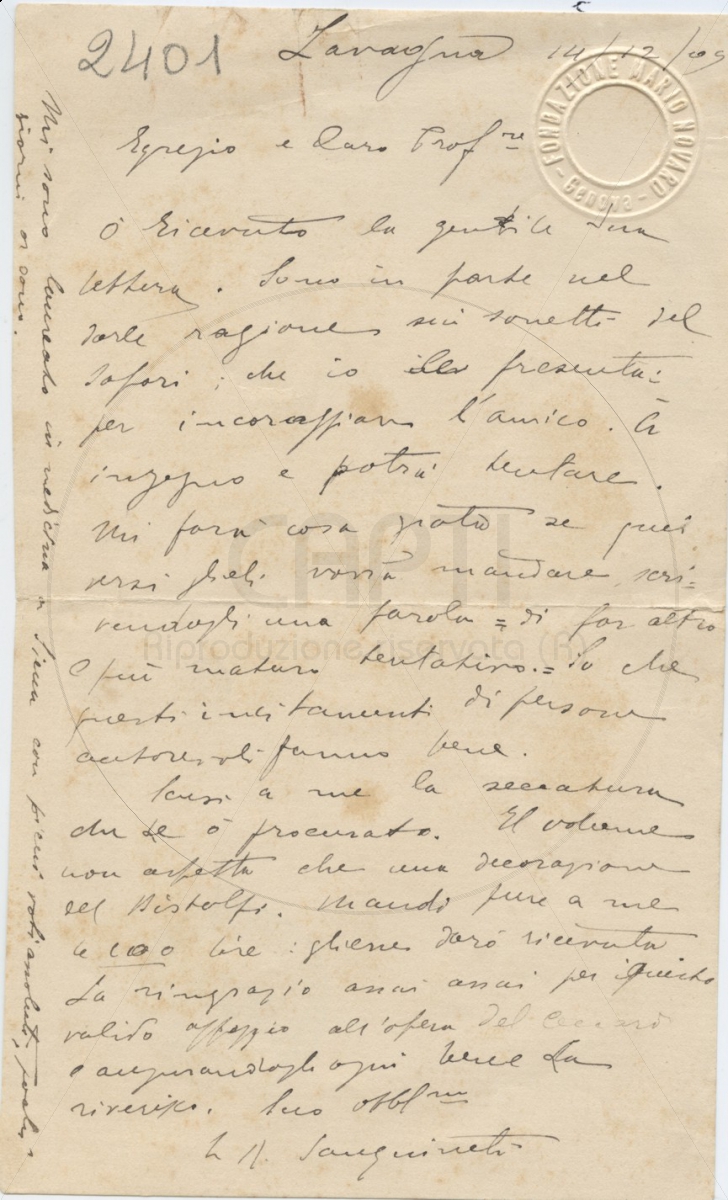 2401
Lavagna 14/12/09
FONDAZIONE MARIO NOVARO
- Genova -
Egregio e Caro Prof.re
ò ricevuto la gentile Sua
lettera. Sono in parte nel
darle ragione sui sonetti del
Safori; che io presentai
per incoraggiare l'amico. À
ingegno e potrà tentare.
Mi farà cosa grata se quei
versi glieli vorrà mandare, scri-
vendogli una parola = di far altro
e più maturo tentativo. = So che
questi incitamenti di persone
autorevoli fanno bene.
Scusi a me la seccatura
che Le ò procurato. Il volume
non aspetta che una decorazione
del Bistolfi. Mandi pure a me
le 100 lire: gliene darò ricevuta
La ringrazio assai assai per questo
valido appoggio all'opera del Ceccardi
e augurandogli ogni bene La
riverisco. Suo obbl.mo
Sanguineti
Mi sono laureato in medicina a Siena con pieni voti assoluti, pochi
giorni or sono.
CAPTI
Riproduzione riservata (R)